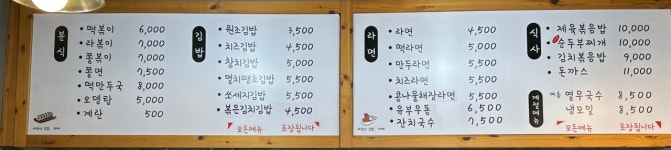 분식
떡볶이 6,000
라볶이 7,000
쫄볶이 7,000
쫄면 7,500
떡만두국 8,000
오뎅탕 5,000
계란 500
김밥
원조김밥 3,500
치즈김밥 4,500
참치김밥 5,000
멸치땡초김밥 5,500
쏘세지김밥 5,500
볶은김치김밥 4,500
모든메뉴 포장됩니다
라면
라면 4,500
떡라면 5,000
만두라면 5,500
치즈라면 5,500
콩나물해장라면 5,500
유부우동 6,500
잔치국수 7,500
식사
제육볶음밥 10,000
순두부찌개 10,000
김치볶음밥 9,000
돈까스 11,000
계절메뉴
여름 열무국수 8,500
냉모밀 8,500
모든메뉴 포장됩니다